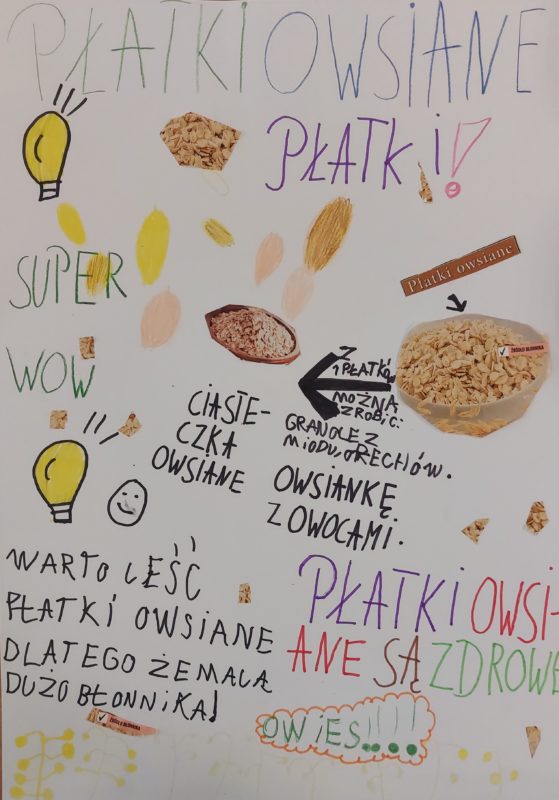 PŁATKI OWSIANE
PŁATKI!
SUPER
WOW
Płatki owsiane
ŹRÓDŁO BŁONNIKA
Z
PŁATKÓW
MOŻNA
ZROBIĆ:
GRANOLE Z
MIODU, ORECHÓW.
OWSIANKĘ
Z OWOCAMI.
CIASTE-
CZKA
OWSIANE
WARTO JEŚĆ
PŁATKI OWSIANE
DLATEGO ŻE MAJĄ
DUŻO BŁONNIKA!
ŹRÓDŁO BŁONNIKA
PŁATKI OWSI-
ANE SĄ ZDROWE
OWIES!!!!